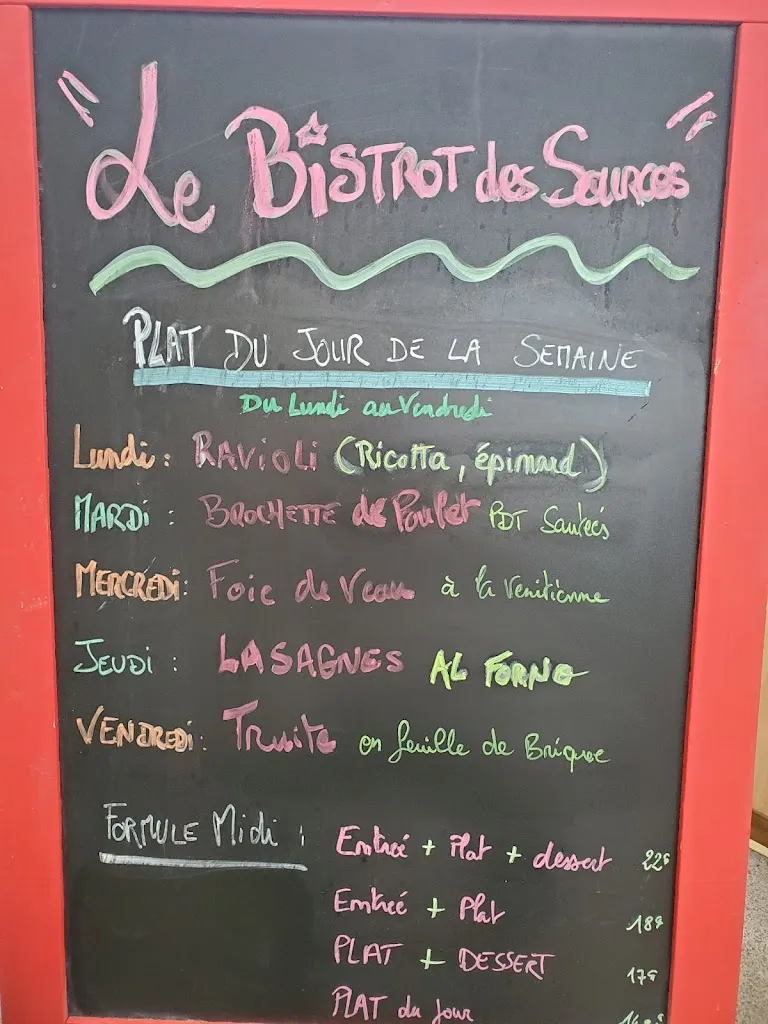 "Le BiSTROT des Sources"
PLAT DU JOUR DE LA SEMAINE
Du Lundi au Vendredi
Lundi : RAVioLi (Ricotta, épinard)
MARDi : BROCHETTE de Poulet PDT Sautées
MERCREDi : Foie de Veau à la Venitienne
JEUDi : LASAGNES AL FORNO
VENDREDi : Truite en feuille de Brique
FORMULE Midi :
Entrée + Plat + dessert 22€
Entrée + Plat 18€
PLAT + DESSERT 17€
PLAT du Jour